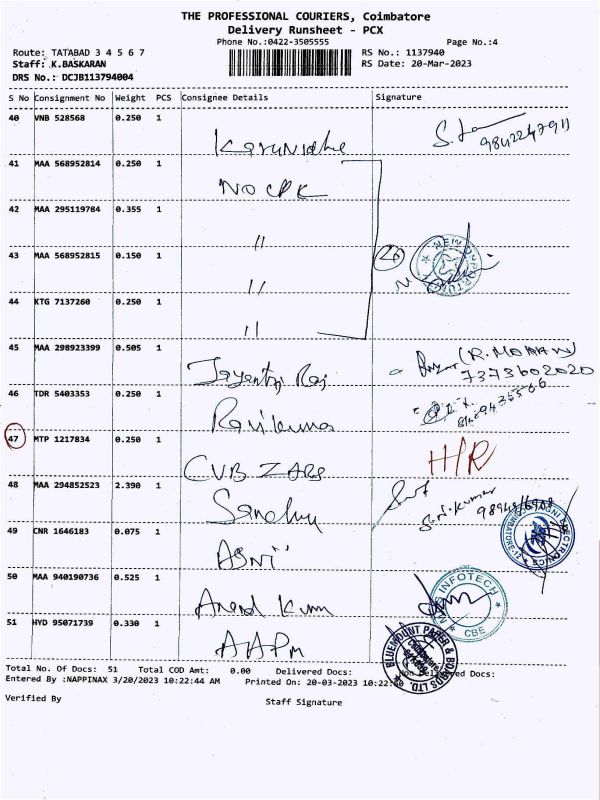 THE PROFESSIONAL COURIERS, Coimbatore
Delivery Runsheet - PCX
Phone No.:0422-3505555 Page No.:4
Route: TATABAD 3 4 5 6 7 RS No.: 1137940
Staff: K.BASKARAN RS Date: 20-Mar-2023
DRS No.: DCJB113794004
S No Consignment No Weight PCS Consignee Details Signature
40 VNB 528568 0.250 1
41 MAA 568952814 0.250 1
NO CPK
42 MAA 295119784 0.355 1
"
43 MAA 568952815 0.150 1
"
44 KTG 7137260 0.250 1
"
45 MAA 298923399 0.505 1
(R. MOHAN)
7373602020
46 TDR 5403353 0.250 1
Ravikumar
47 MTP 1217834 0.250 1
H/R
CUB ZARS
48 MAA 294852523 2.390 1
Sandhu
49 CNR 1646183 0.075 1
ASNii
50 MAA 940190736 0.525 1
INFOTECH
CBE
Anand Kum
51 HYD 95071739 0.330 1
AAPM
BLUEMOUNT PAPER & BOARDS LTD.
Total No. Of Docs: 51 Total COD Amt: 0.00 Delivered Docs: Non Delivered Docs:
Entered By :NAPPINAX 3/20/2023 10:22:44 AM Printed On: 20-03-2023 10:22:50
Verified By Staff Signature